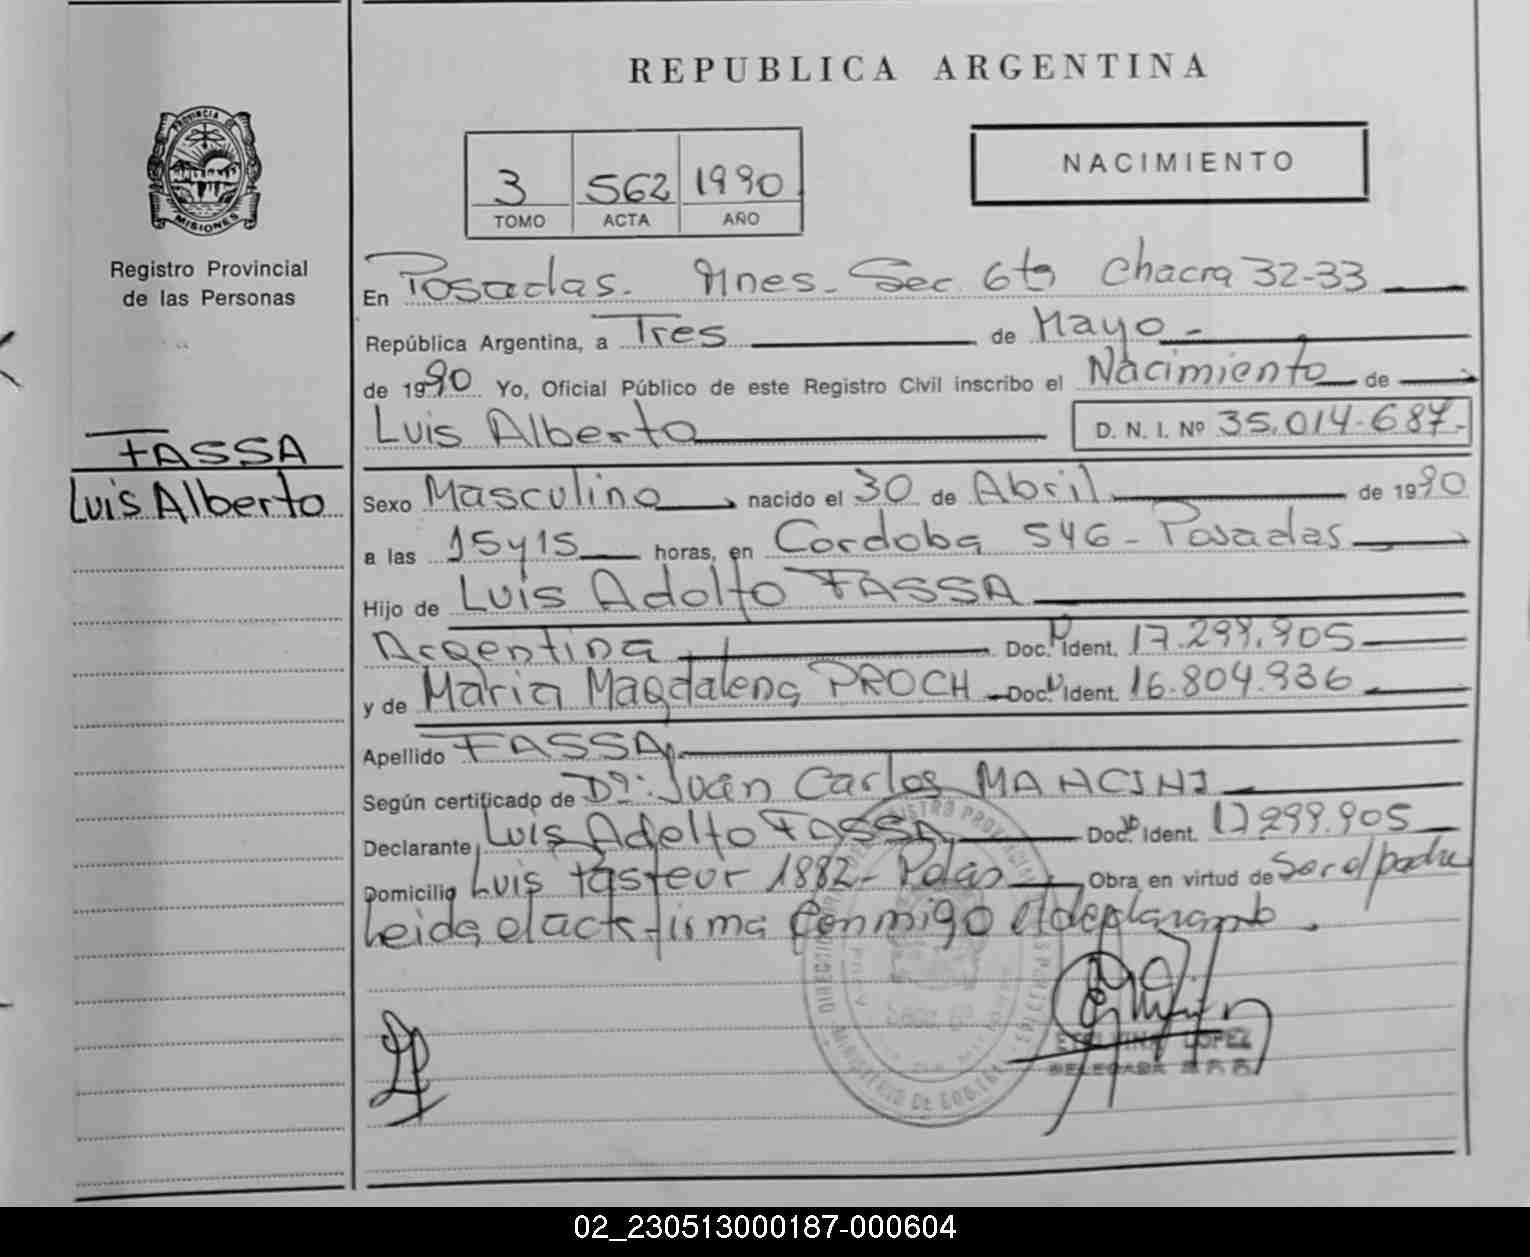 REPUBLICA ARGENTINA
PROVINCIA DE
MISIONES
Registro Provincial
de las Personas
3 562 1990
TOMO ACTA AÑO
NACIMIENTO
En Posadas. Mnes. Sec. 6ta Chacra 32-33
República Argentina, a Tres de Mayo.-
de 1990 Yo, Oficial Público de este Registro Civil inscribo el Nacimiento de
Luis Alberto D. N. I. Nº 35.014.687.-
FASSA
Luis Alberto
Sexo Masculino nacido el 30 de Abril de 1990
a las 15 y 15 horas, en Cordoba 546 - Posadas
Hijo de Luis Adolfo FASSA
Argentina Doc. Ident. 17.299.905
y de Maria Magdalena PROCH Doc. Ident. 16.804.936
Apellido FASSA.
Según certificado de Dr: Juan Carlos MANCINI
Declarante Luis Adolfo FASSA Doc. Ident. 17.299.905
Domicilio Luis Pasteur 1882 - Pdas Obra en virtud de Ser el padre
Leida el acta firma conmigo el declarante.
REGISTRO PROVINCIAL
MINISTERIO DE
LOPEZ
DELEGADA
02_230513000187-000604